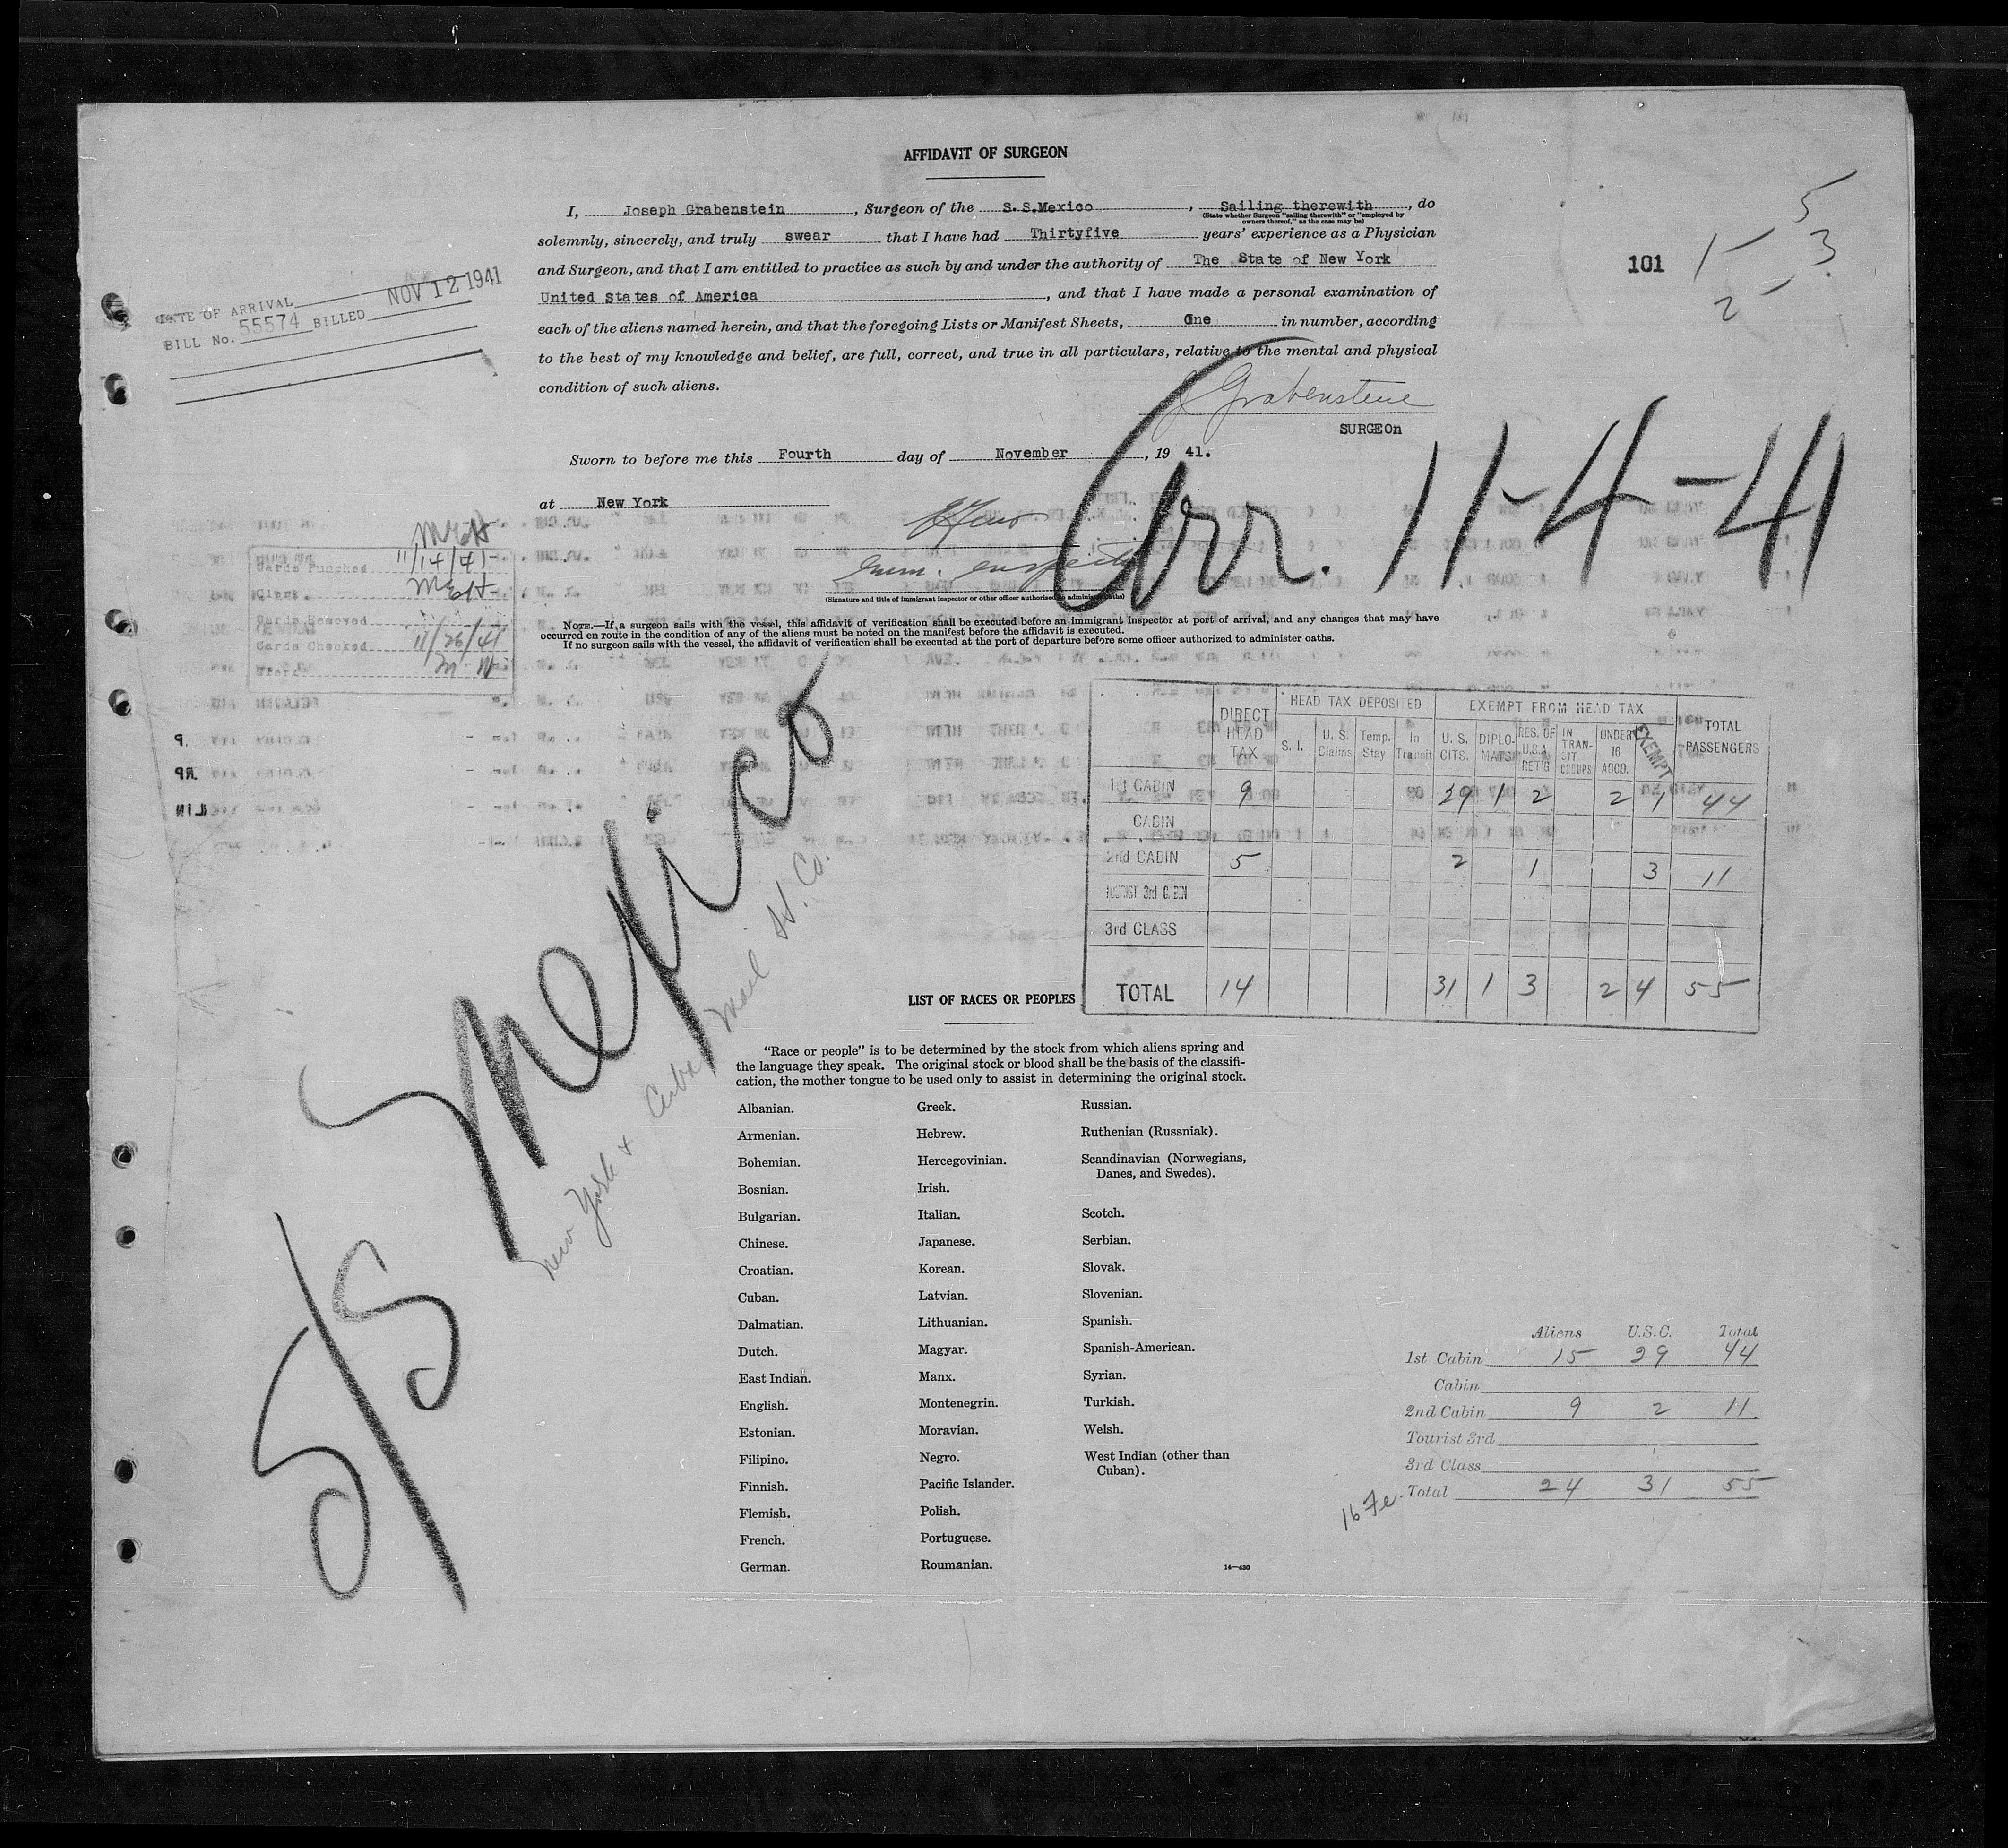 AFFIDAVIT OF SURGEON
I, Joseph Grabenstein, Surgeon of the S.S.Mexico, Sailing therewith, do
(State whether Surgeon "sailing therewith" or "employed by
owners thereof," as the case may be)
solemnly, sincerely, and truly swear that I have had Thirtyfive years' experience as a Physician
and Surgeon, and that I am entitled to practice as such by and under the authority of The State of New York
United States of America, and that I have made a personal examination of
each of the aliens named herein, and that the foregoing Lists or Manifest Sheets, One in number, according
to the best of my knowledge and belief, are full, correct, and true in all particulars, relative to the mental and physical
condition of such aliens.
J Grabenstein
SURGEOn
Sworn to before me this Fourth day of November, 19 41.
at New York
Imm. Inspector
(Signature and title of immigrant inspector or other officer authorized to administer oaths)
NOTE.—If a surgeon sails with the vessel, this affidavit of verification shall be executed before an immigrant inspector at port of arrival, and any changes that may have
occurred en route in the condition of any of the aliens must be noted on the manifest before the affidavit is executed.
If no surgeon sails with the vessel, the affidavit of verification shall be executed at the port of departure before some officer authorized to administer oaths.
101
5
1 3
2
DATE OF ARRIVAL NOV 12 1941
BILL No. 55574 BILLED
Arr. 11-4-41
Cards Punched 11/14/41
Cards Removed
Cards Checked 11/26/41
S/S Mexico
New York & Cuba Mail SS. Co.
DIRECT HEAD TAX
HEAD TAX DEPOSITED
EXEMPT FROM HEAD TAX
TOTAL PASSENGERS
S. I. U. S. Claims Temp. Stay In Transit U. S. CITS. DIPLO-MATS RES. OF U.S.A. RET'G IN TRAN-SIT GROUPS UNDER 16 ACCO. EXEMPT
1st CABIN 9 29 1 2 2 1 44
CABIN
2nd CABIN 5 2 1 3 11
TOURIST 3rd CABIN
3rd CLASS
TOTAL 14 31 1 3 2 4 55
LIST OF RACES OR PEOPLES
"Race or people" is to be determined by the stock from which aliens spring and
the language they speak. The original stock or blood shall be the basis of the classifi-
cation, the mother tongue to be used only to assist in determining the original stock.
Albanian.
Armenian.
Bohemian.
Bosnian.
Bulgarian.
Chinese.
Croatian.
Cuban.
Dalmatian.
Dutch.
East Indian.
English.
Estonian.
Filipino.
Finnish.
Flemish.
French.
German.
Greek.
Hebrew.
Hercegovinian.
Irish.
Italian.
Japanese.
Korean.
Latvian.
Lithuanian.
Magyar.
Manx.
Montenegrin.
Moravian.
Negro.
Pacific Islander.
Polish.
Portuguese.
Roumanian.
Russian.
Ruthenian (Russniak).
Scandinavian (Norwegians,
Danes, and Swedes).
Scotch.
Serbian.
Slovak.
Slovenian.
Spanish.
Spanish-American.
Syrian.
Turkish.
Welsh.
West Indian (other than
Cuban).
14—430
Aliens U.S.C. Total
1st Cabin 15 29 44
Cabin
2nd Cabin 9 2 11
Tourist 3rd
3rd Class
Total 24 31 55
16 Fe.